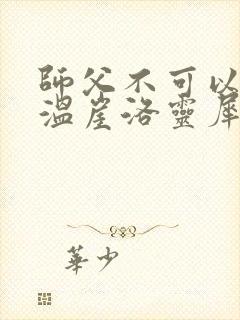 師父不可以
溫崖洛靈犀
華少